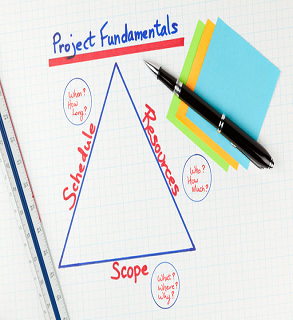 Project Fundamentals
When?
How
Long?
Schedule
Resources
Who?
How
Much?
Scope
What?
Where?
Why?